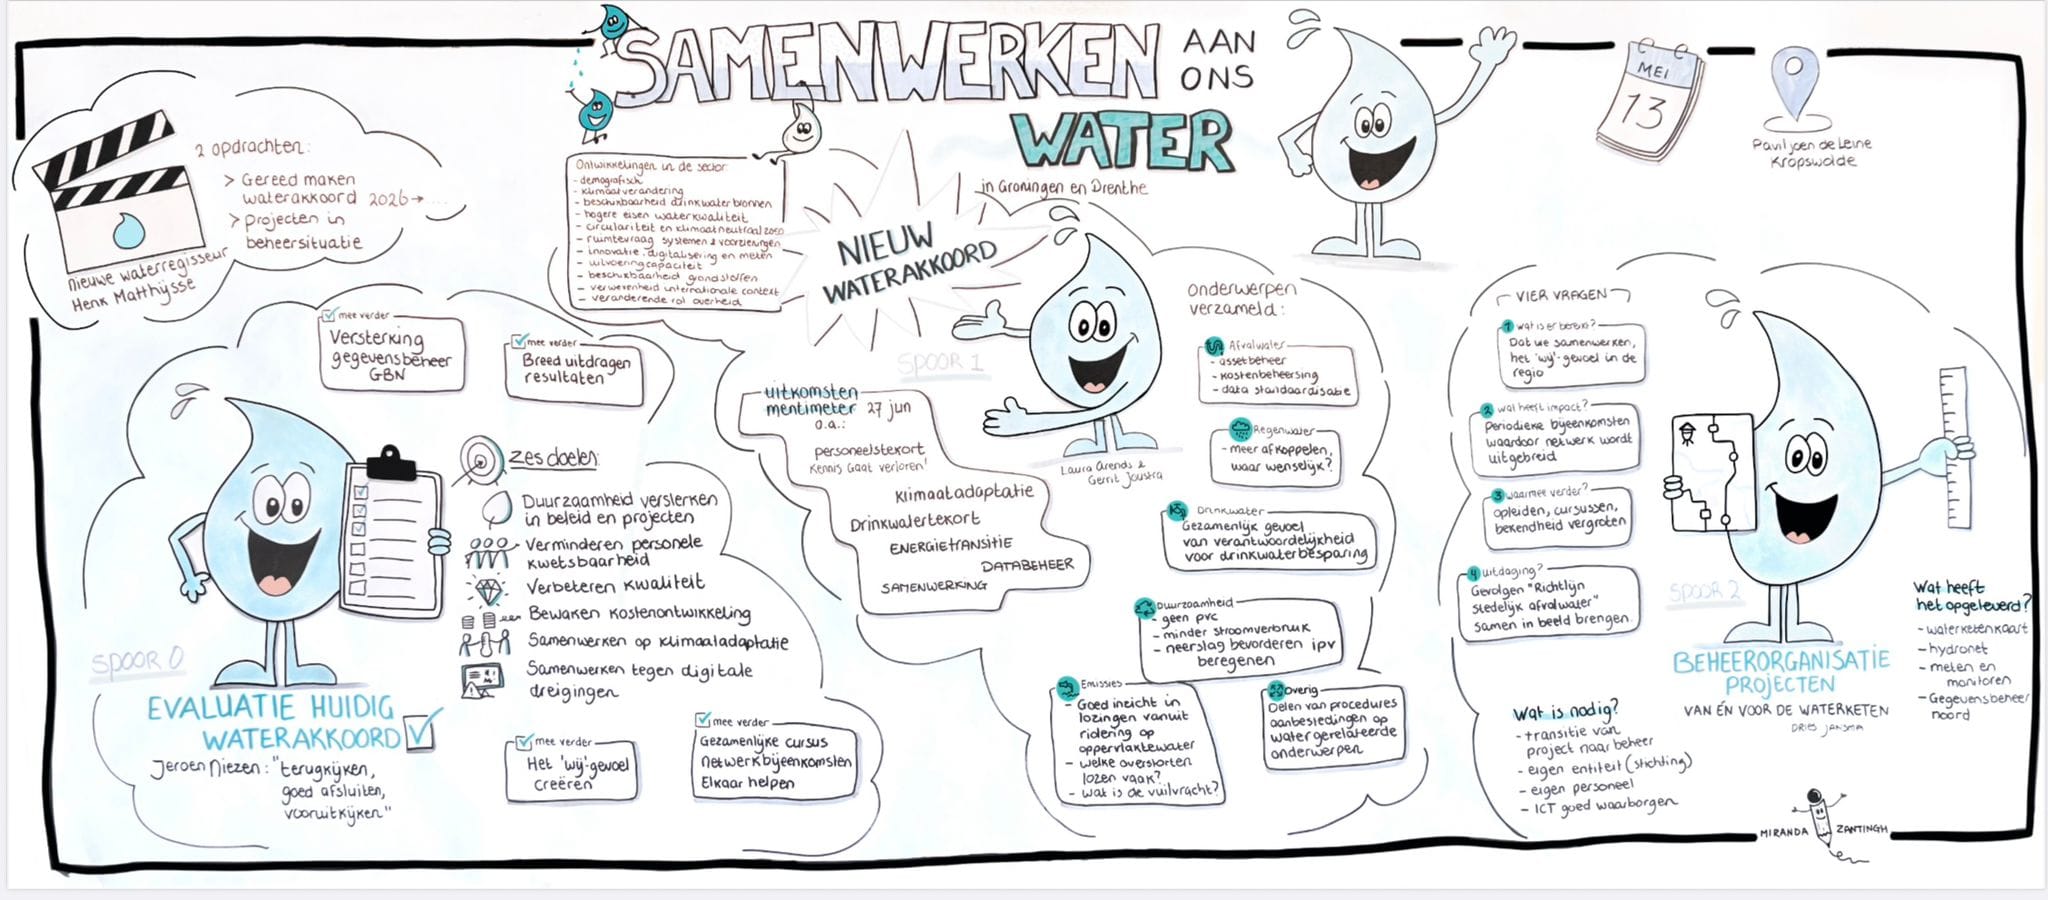 SAMENWERKEN
AAN
ONS
WATER
in Groningen en Drenthe
MEI
13
Paviljoen de Leine
Kropswolde
2 opdrachten:
> Gereed maken
waterakkoord 2026→...
> projecten in
beheersituatie
Nieuwe waterregisseur
Henk Matthijsse
Ontwikkelingen in de sector:
- demografisch
- klimaatverandering
- beschikbaarheid drinkwaterbronnen
- hogere eisen waterkwaliteit
- circulariteit en klimaatneutraal 2050
- ruimtevraag systemen & voorzieningen
- innovatie, digitalisering en meten
- uitvoeringcapaciteit
- beschikbaarheid grondstoffen
- verwevenheid internationale context
- veranderende rol overheid
NIEUW
WATERAKKOORD
✓ mee verder
Versterking
gegevensbeheer
GBN
✓ mee verder
Breed uitdragen
resultaten
zes doelen:
Duurzaamheid versterken
in beleid en projecten
Verminderen personele
kwetsbaarheid
Verbeteren kwaliteit
Bewaken kostenontwikkeling
Samenwerken op klimaatadaptatie
Samenwerken tegen digitale
dreigingen
SPOOR 0
EVALUATIE HUIDIG
WATERAKKOORD
Jeroen Niezen: "terugkijken,
goed afsluiten,
vooruitkijken"
✓ mee verder
Het 'wij'-gevoel
creëren
✓ mee verder
Gezamenlijke cursus
Netwerkbijeenkomsten
Elkaar helpen
SPOOR 1
uitkomsten
mentimeter 27 jun
o.a.:
personeelstekort
'Kennis Gaat verloren'
Klimaatadaptatie
Drinkwatertekort
ENERGIETRANSITIE
DATABEHEER
SAMENWERKING
Laura Arends &
Gerrit Joustra
onderwerpen
verzameld:
Afvalwater
- assetbeheer
- kostenbeheersing
- data standaardisatie
Regenwater
- meer afkoppelen,
waar wenselijk?
Drinkwater
Gezamenlijk gevoel
van verantwoordelijkheid
voor drinkwaterbesparing
Duurzaamheid
- geen pvc
- minder stroomverbruik
- neerslag bevorderen ipv
beregenen
Emissies
- Goed inzicht in
lozingen vanuit
riolering op
oppervlaktewater
- welke overstorten
lozen vaak?
- wat is de vuilvracht?
Overig
Delen van procedures
aanbestedingen op
water gerelateerde
onderwerpen
VIER VRAGEN
1 wat is er bereikt?
Dat we samenwerken,
het 'wij'-gevoel in de
regio
2 wat heeft impact?
Periodieke bijeenkomsten
waardoor netwerk wordt
uitgebreid
3 waarmee verder?
opleiden, cursussen,
bekendheid vergroten
4 uitdaging?
Gevolgen "Richtlijn
stedelijk afvalwater"
samen in beeld brengen.
SPOOR 2
BEHEERORGANISATIE
PROJECTEN
VAN ÉN VOOR DE WATERKETEN
DRIES JANSMA
Wat is nodig?
- transitie van
project naar beheer
- eigen entiteit (stichting)
- eigen personeel
- ICT goed waarborgen
Wat heeft
het opgeleverd?
- waterketenkaart
- hydronet
- meten en
monitoren
- Gegevensbeheer
noord
MIRANDA ZANTINGH